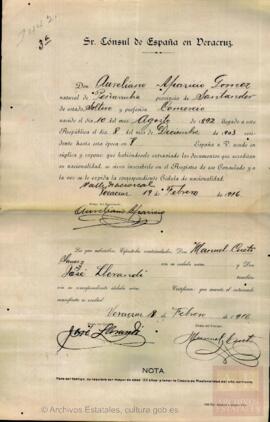 Sr. Cónsul de España en Veracruz.
Don Aureliano Aparicio Gomez
natural de Peñarrubia provincia de Santander
de estado, Soltero y profesión Comercio
nacido el 10 del mes Agosto de 1892 llegado a esta
República el 8 del mes de Diciembre de 1903 y
residente hasta esta época en
España a V. acude en
súplica y expone: que habiéndosele extraviado los documentos que acreditan
su nacionalidad, se sirva inscribirle en el Registro de ese Consulado y a
la vez se le expida la correspondiente Cédula de nacionalidad.
Valle Nacional
Veracruz 19 de Febrero de 1916
Aureliano Aparicio
Los que subscriben, Españoles matriculados, Don Manuel Cueto
con su cédula núm. y Don
José Llerandi con
su correspondiente cédula núm. Certifican que cuanto el interesado
manifiesta es verdad.
Veracruz 18 de Febrero de 1916
José Llerandi
Manuel Cueto
NOTA
© Archivos Estatales, cultura.gob.es